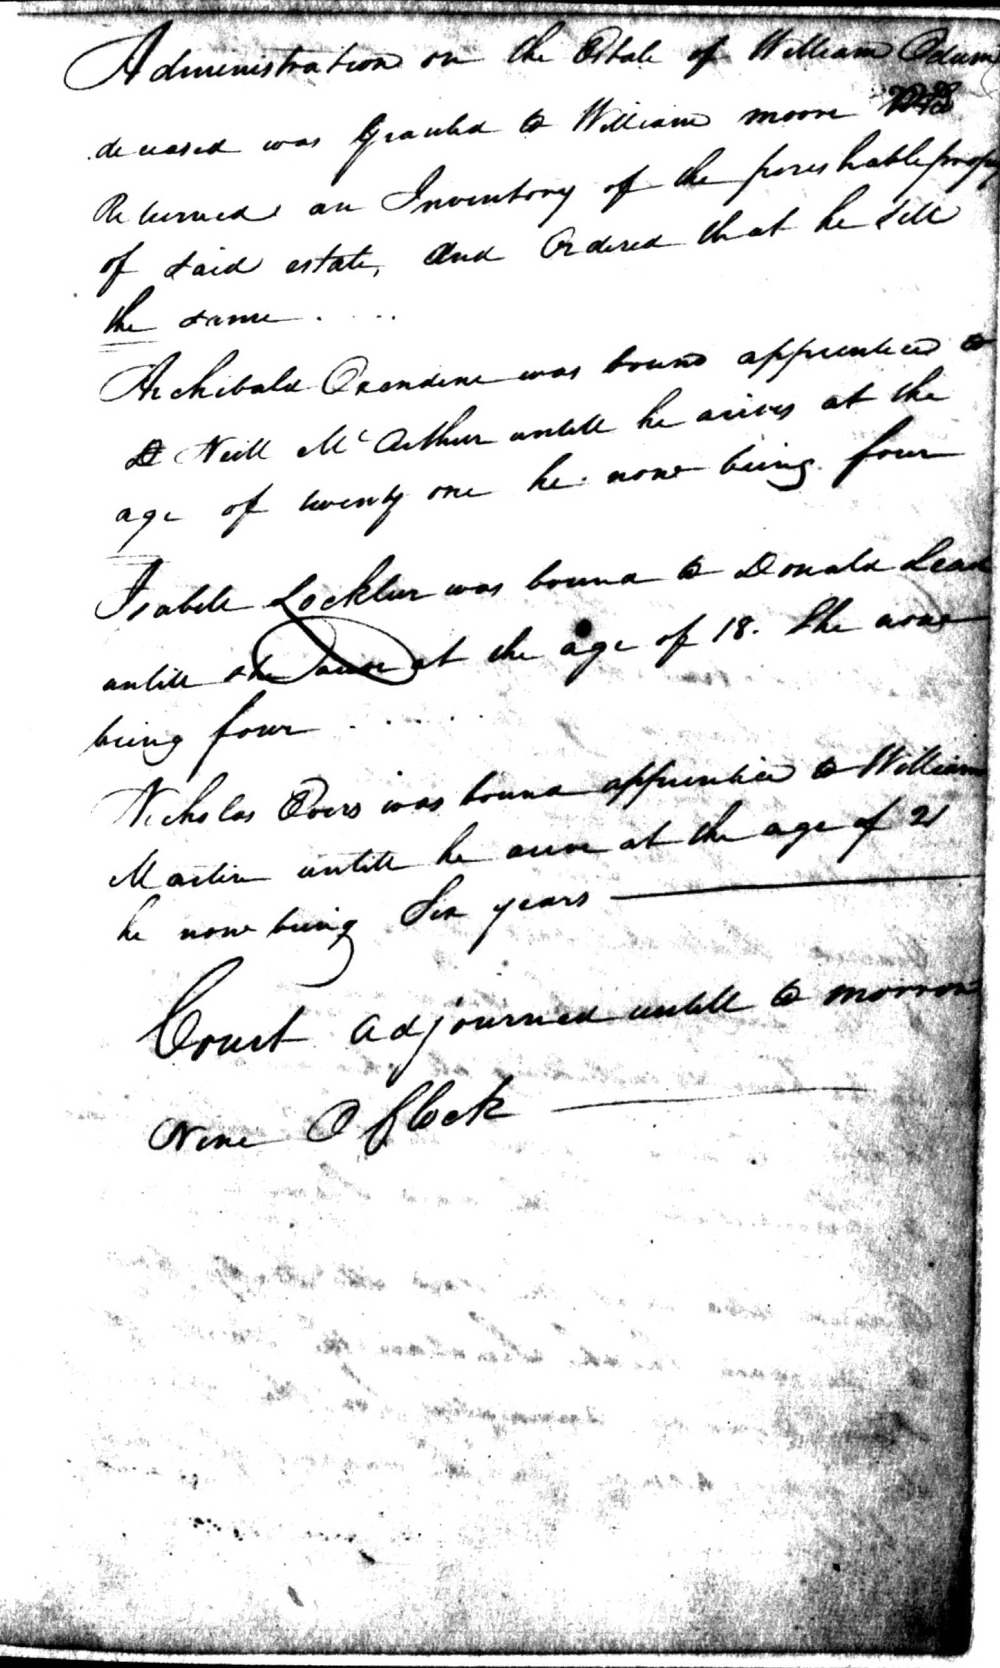 Administration on the Estate of William Odum
deceased was Granted to William moore
Returned an Inventory of the pereshable
of said estate, and Ordered that he sell
the same . . . .
Archibald Oxendine was bound apprentice to
D Neill McArthur untill he arives at the
age of twenty one he now being four
Isabell Locklier was bound to Donald
untill she arive at the age of 18. She now
being four . . . . .
Nicholas was bound apprentice to William
Martin untill he arive at the age of 21
he now being Six years
Court adjourned untill to morrow
Nine O Clock